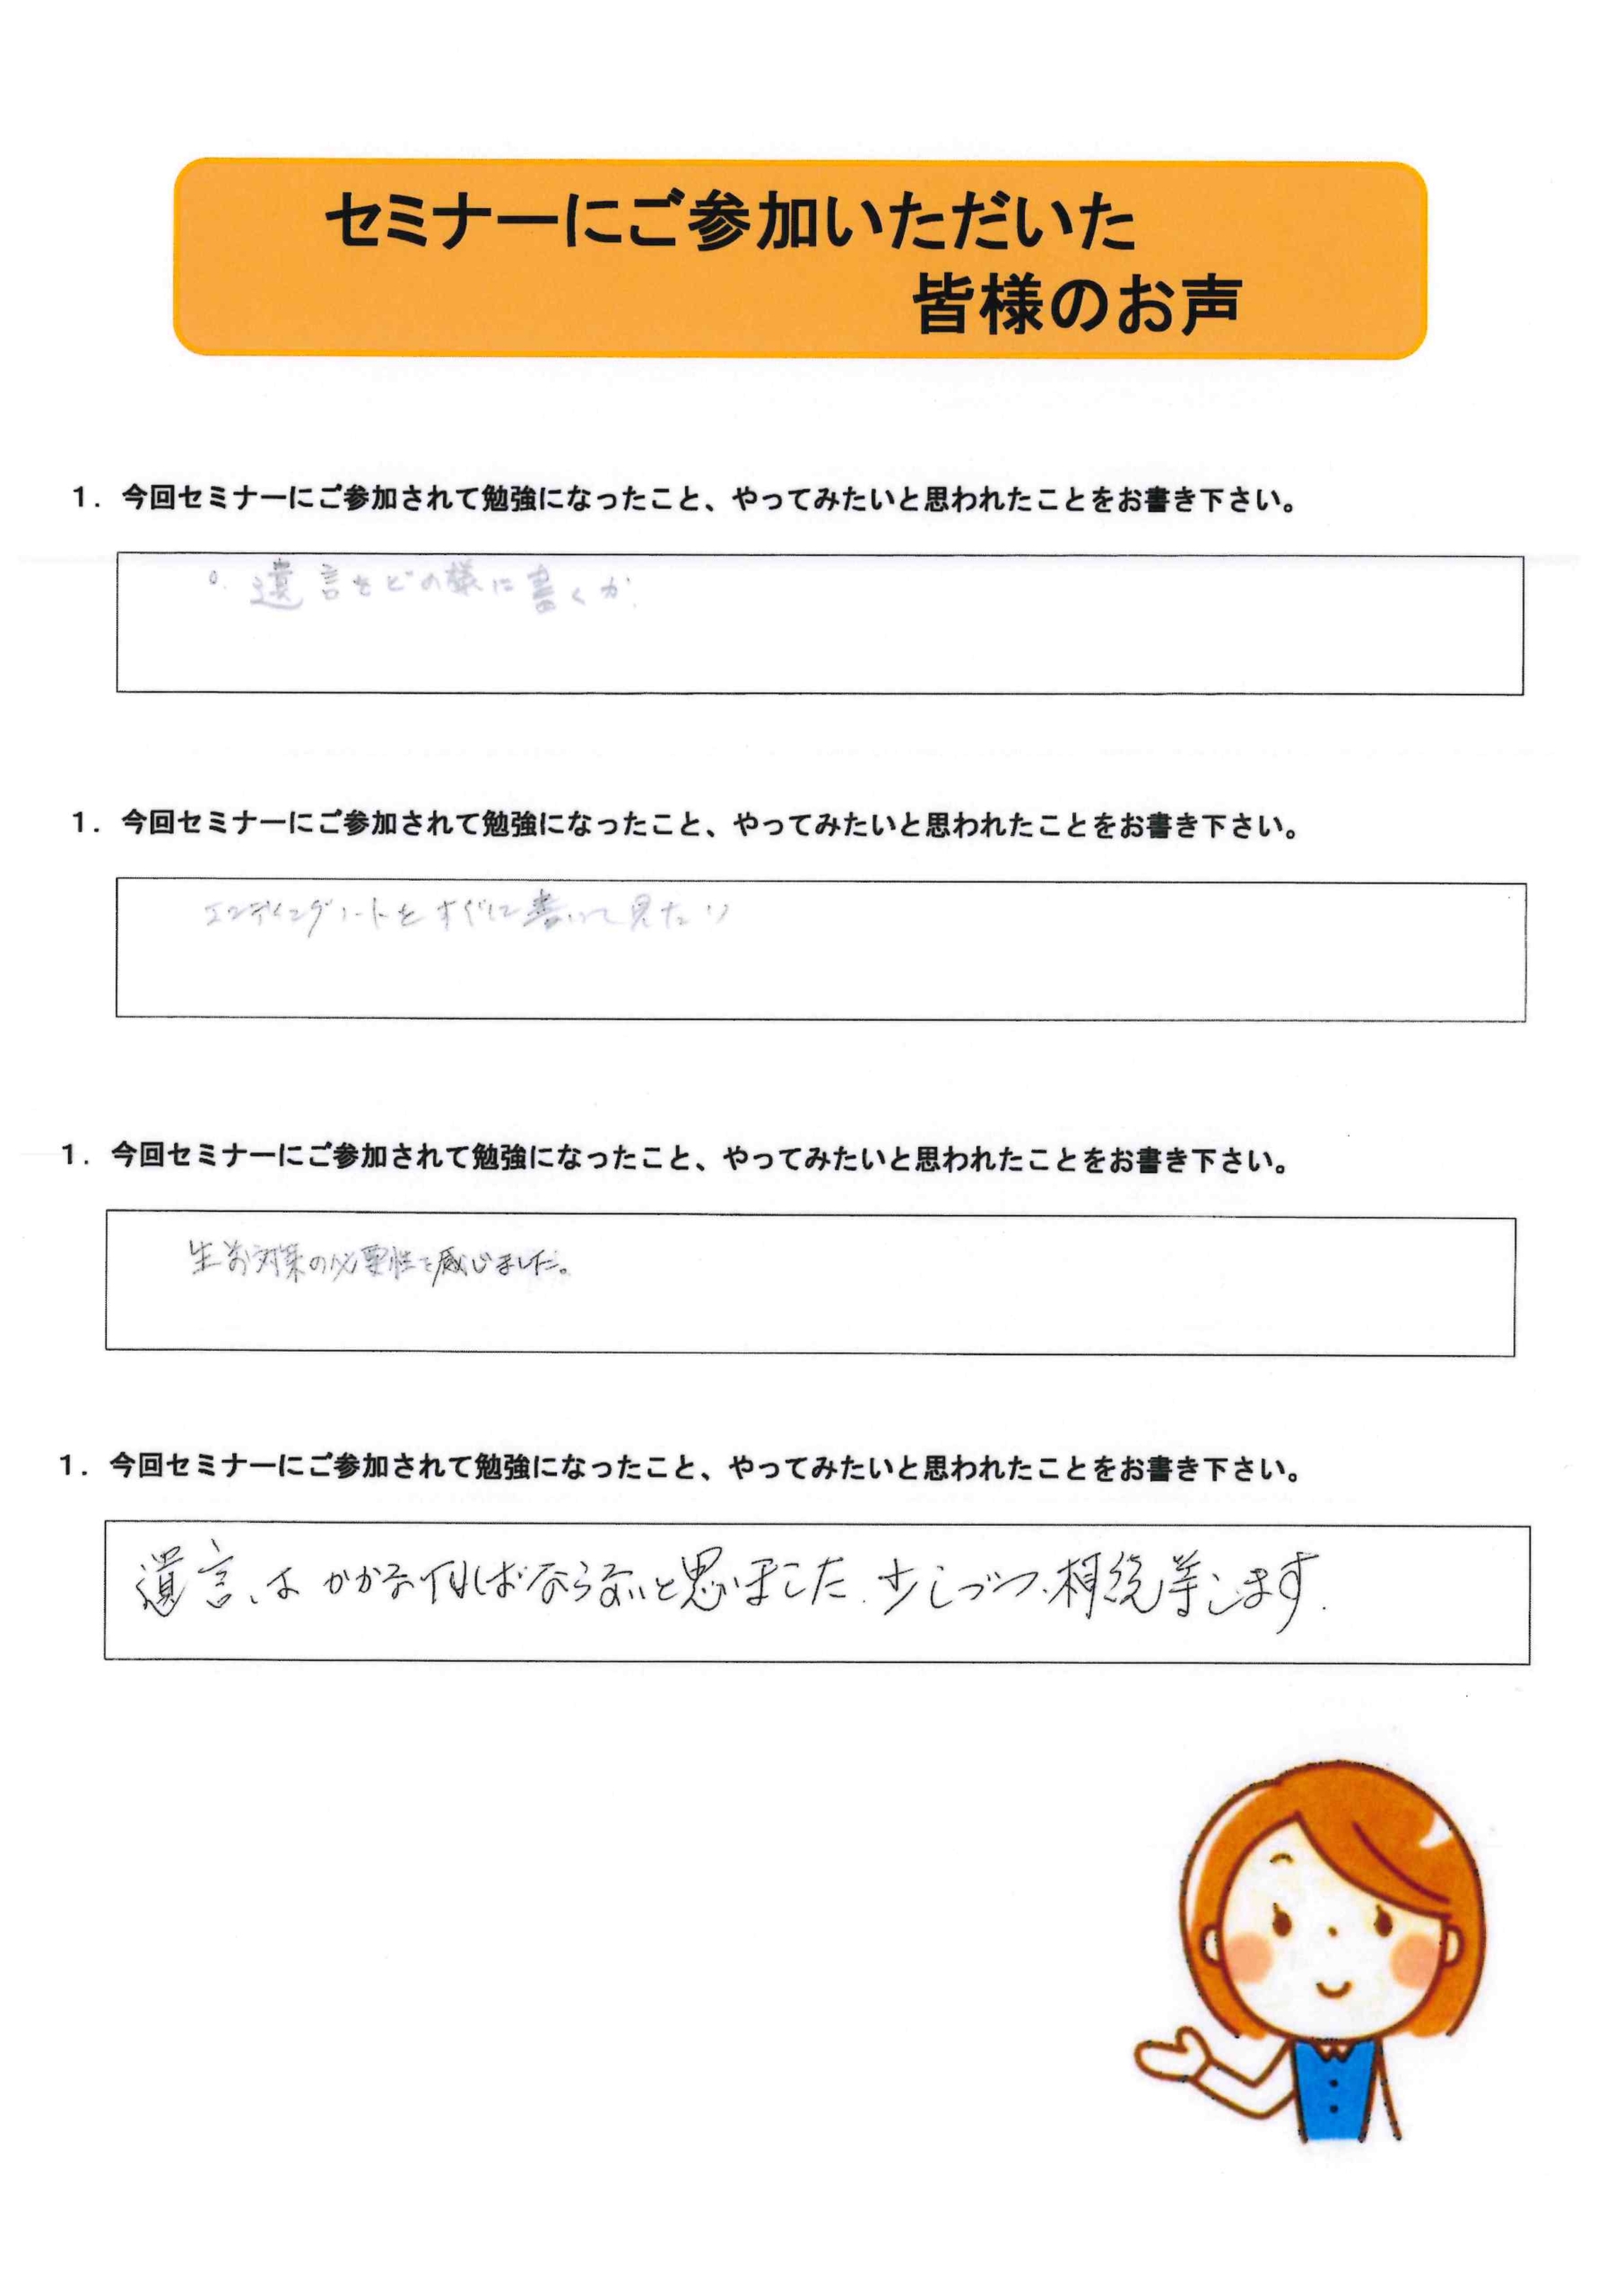 セミナーにご参加いただいた
皆様のお声
1. 今回セミナーにご参加されて勉強になったこと、やってみたいと思われたことをお書き下さい。
○. 遺言をどの様に書くか.
1. 今回セミナーにご参加されて勉強になったこと、やってみたいと思われたことをお書き下さい。
エンディングノートをすぐに書いて見たい
1. 今回セミナーにご参加されて勉強になったこと、やってみたいと思われたことをお書き下さい。
生前対策の必要性を感じました。
1. 今回セミナーにご参加されて勉強になったこと、やってみたいと思われたことをお書き下さい。
遺言はかかなければならないと思いました. 少しづつ、相続等します.